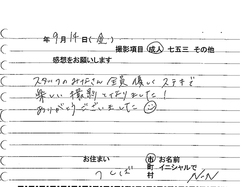 年9月14日(金)
撮影項目 成人 七五三 その他
感想をお願いします
スタッフのお姉さん全員優しくステキで
楽しい撮影で行りました!
ありがとうございました☺
お住まい 市 お名前
町 イニシャルで
つくば 村 N・N